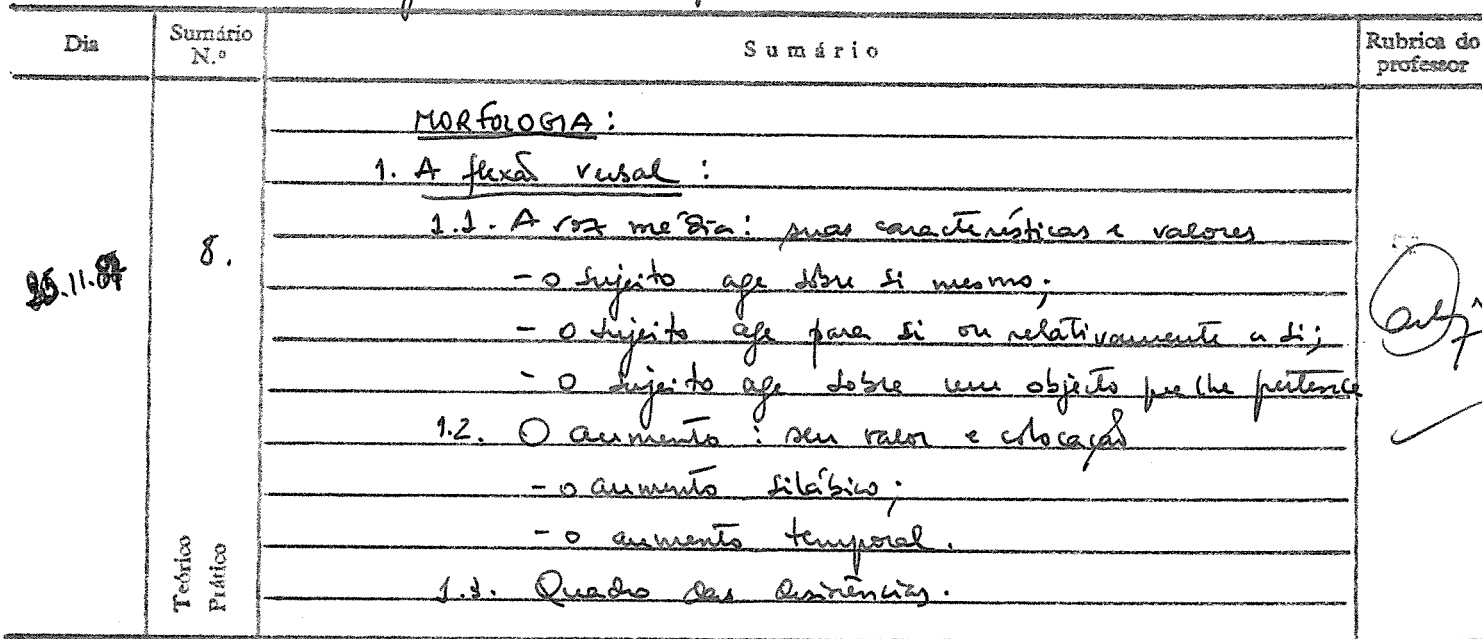 Dia Sumário N.º Sumário Rubrica do professor
MORFOLOGIA:
1. A flexão verbal :
1.1. A voz média: suas características e valores
8.
- o sujeito age sobre si mesmo;
.11.87
- o sujeito age para si ou relativamente a si;
- o sujeito age sobre um objecto que lhe pertence
1.2. O aumento : seu valor e colocação
- o aumento silábico;
- o aumento temporal.
1.3. Quadro das desinências.
Teórico
Prático